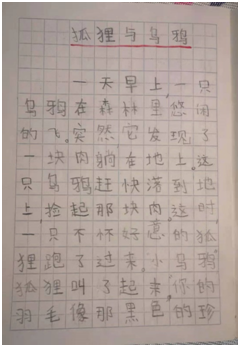 狐狸与乌鸦
一天早上,一只
乌鸦在森林里悠闲
的飞。突然它发现了
一块肉躺在地上。这
只乌鸦赶快落到地
上,捡起那块肉。这时,
一只不怀好意的狐
狸跑了过来。小乌鸦
狐狸叫了起来,你的
羽毛像那黑色的珍